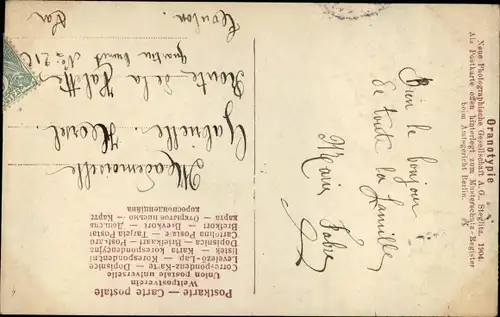 Oranotypie
Neue Photographische Gesellschaft A.G., Steglitz. 1904.
Als Postkarte offen hinterlegt zum Musterschutz-Register
beim Amtsgericht Berlin.
Bien le bonjour
de toute la famille
Marius Fabre
Postkarte — Carte postale
Weltpostverein
Union postale universelle
Correspondenz-Karte — Dopisnice
Levelező-Lap — Korespondentní
lístek — Karta korespondencyjna
Dopisnica — Briefkaart — Postcard
Cartolina Postale — Tarjeta Postal
Brefkort — Brevkort — Дописна
карта — Открытое письмо — Карт
Mademoiselle
Gabrielle
Route de la Valette
quartier brunet No 210
Toulon. Var